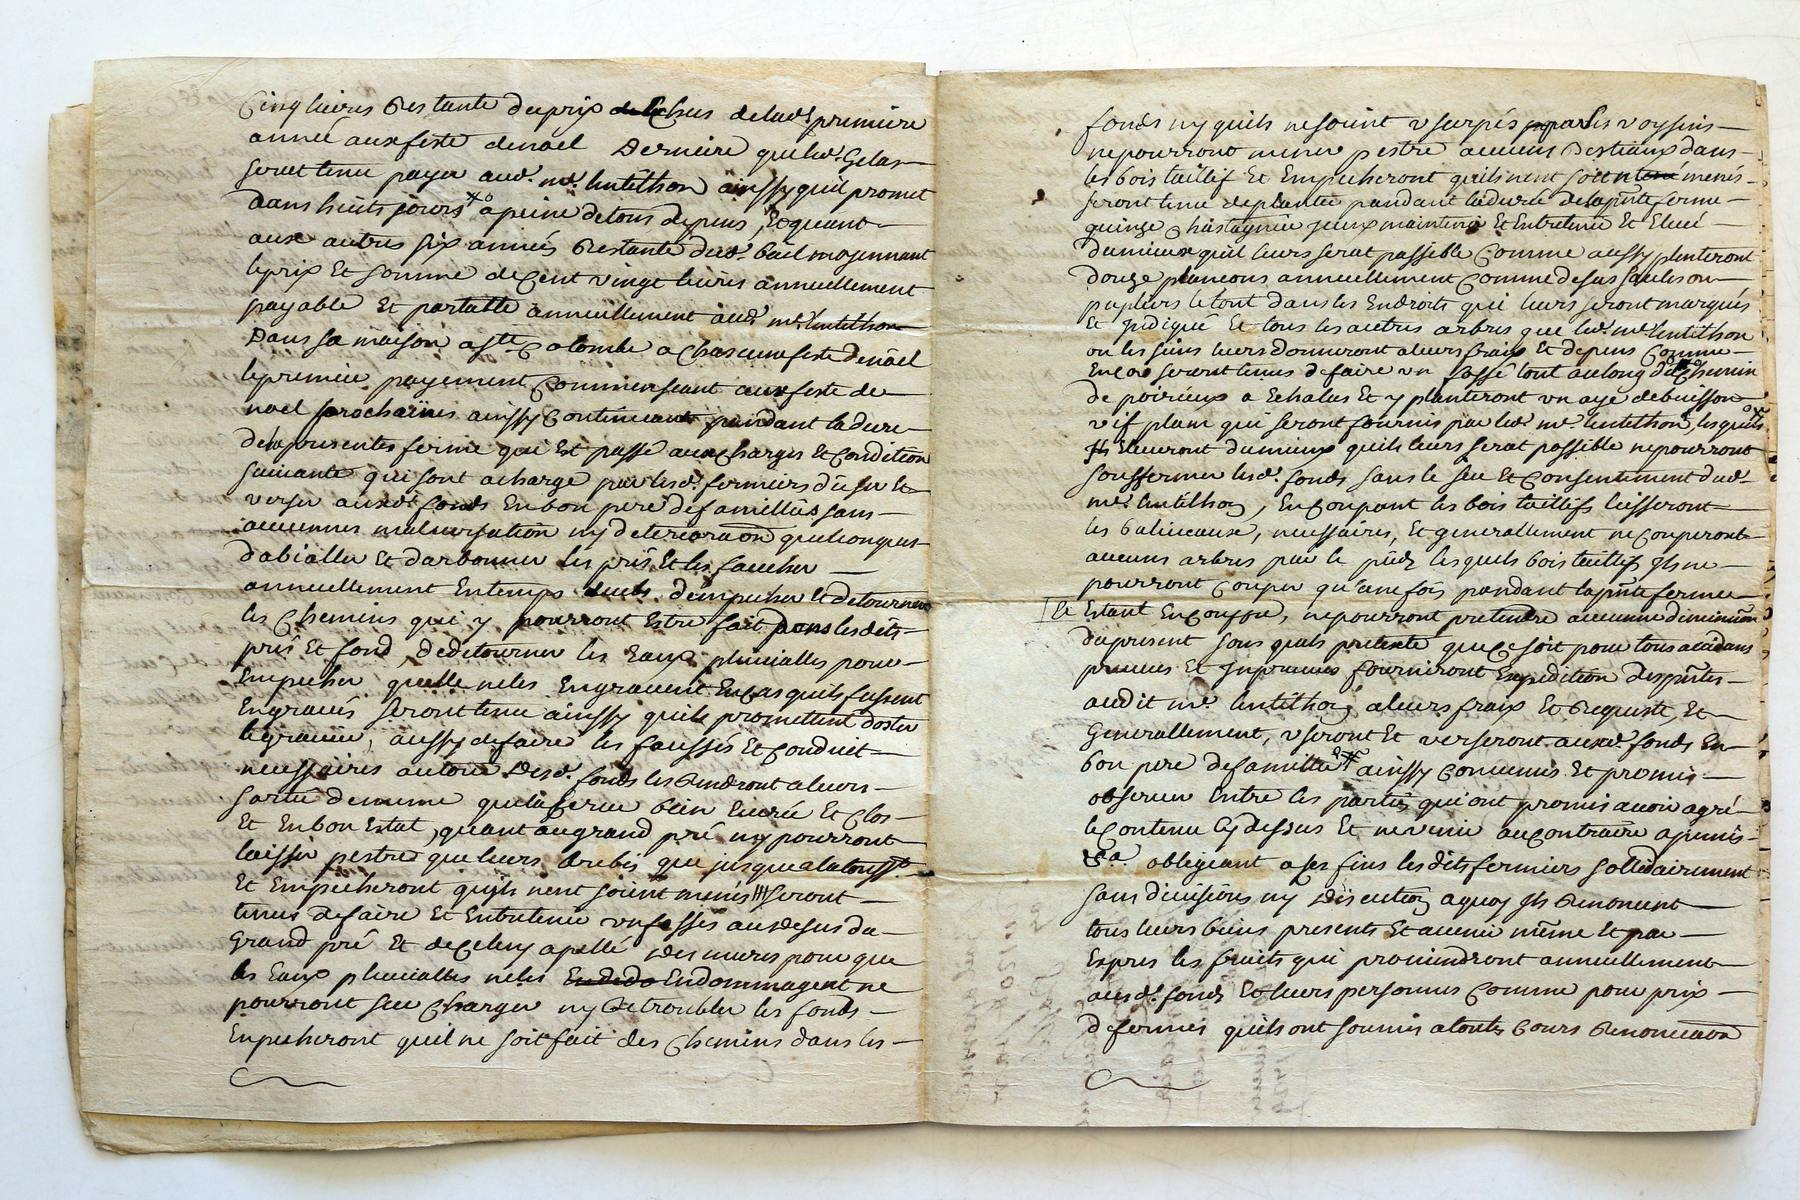 Cinq livres restante du prix de chus delad. premiere
année aux feste denoel Derniere queled. Gelas
serat tenu payer aud. me. lentilhon ainssy quil promet
dans huits jours a peine de tous depens, Et quant
aux autres six années restante dud. bail moyennant
le prix Et somme de Cent vingt livres annuellement
payable Et portable annuellement aud. me. lentilhon
Dans sa maison a ste Colombe a Chascune feste denoel
le premier payement Commensant aux feste de
noel prochaines ainssy Continuant pendant la dure
delapresentes ferme qui Est passé aux charges Et Condition
suivante qui sont a charge par lesd. fermiers duser Et
verser auxd. fonds En bon pere de familles sans
aucunnes malversation ny deterioraon quelconques
dabialler Et darbonner les prés Et les faucher
annuellement En temps deub dempecher Et detourner
les Chemins qui y pourront Estre fait dans lesdits
prés Et fond, dedetourner les Eaux pluvialles pour
Empecher quelle ne les Engravent En cas quils fussent
Engravés seront tenu ainssy quils promettent doster
le gravier, aussy defaire les faussés Et Conduit
necessaires autour desd. fonds les rendront a leurs
sortie de meme que la terre bien Encrée Et Clos
Et En bon Estat, quant au grand pré ny pourront
laisser pestre que leurs brebis que jusque a la touss.
Et Empecheront quils nent soient menés seront
tenus defaire Et Entretenir un fossés au desus du
grand pré Et de Celuy apellé des mures pour que
les Eaux pluvialles ne les Endommagent ne
pourront sur Charger ny detroubler les fonds
Empecheront quil ne soit fait des Chemins dans les
fonds ny quils ne soint usurpés par les voysins
ne pourront mener pestre aucuns bestiaux dans
les bois taillif Et Empecheront quils nent soit menés
seront tenu de planter pandant la durée de la pnte ferme
quinze chastagnier jceux maintenir Et Entretenir Et Elevé
du mieux quil leurs serat possible Comme aussy planteront
douze plancons annuellement Comme desus saules ou
pupliers le tout dans les Endroits qui leurs seront marqués
Et jndiqué Et tous les autres arbres que led. me. lentilhon
ou les siens leurs donneront a leurs fraix Et depens Comme
Encore seront tenus defaire un fossé tout au long du Chemin
de poirieux a Echalas Et y planteront un aye de buisson
vif plan qui seront fournis par led. me. lentilhon, lesquels
jls Eleveront du mieux quils leurs serat possible ne pourront
soussfermer lesd. fonds sans le seu Et Consentiment dud.
me. lentilhon, En Coupant les bois taillifs laisseront
les baliveaux, necessaires, Et generallement ne Couperont
aucuns arbres par le pied lesquels bois taillifs jls ne
pourront Couper qu'une fois pandant la pnte ferme
le Estant En Couppe, ne pourront pretendre aucunne diminuon
du present sous quels pretexte que Ce soit pour tous accidans
preveus Et jmpreveus fourniront Expedition des pntes
audit me. lentilhon a leurs fraix Et requiste, Et
Generallement, useront Et verseront auxd. fonds En
bon pere de famille ainssy Convenus Et promis
observer Entre les parties qui ont promis avoir agré
le Contenu Cy dessus Et ne venir au Contraire a peines
&a. obligeant a ses fins lesdits fermiers sollidairement
sans divisions ny discution a quoy jls renoncent
tous leurs biens presents Et avenir même Et par
Expres les fruits qui proviendront annuellement
ausd. fonds Et leurs personnes Comme pour prix
de fermes quils ont soumis a toutes Cours renonciaon